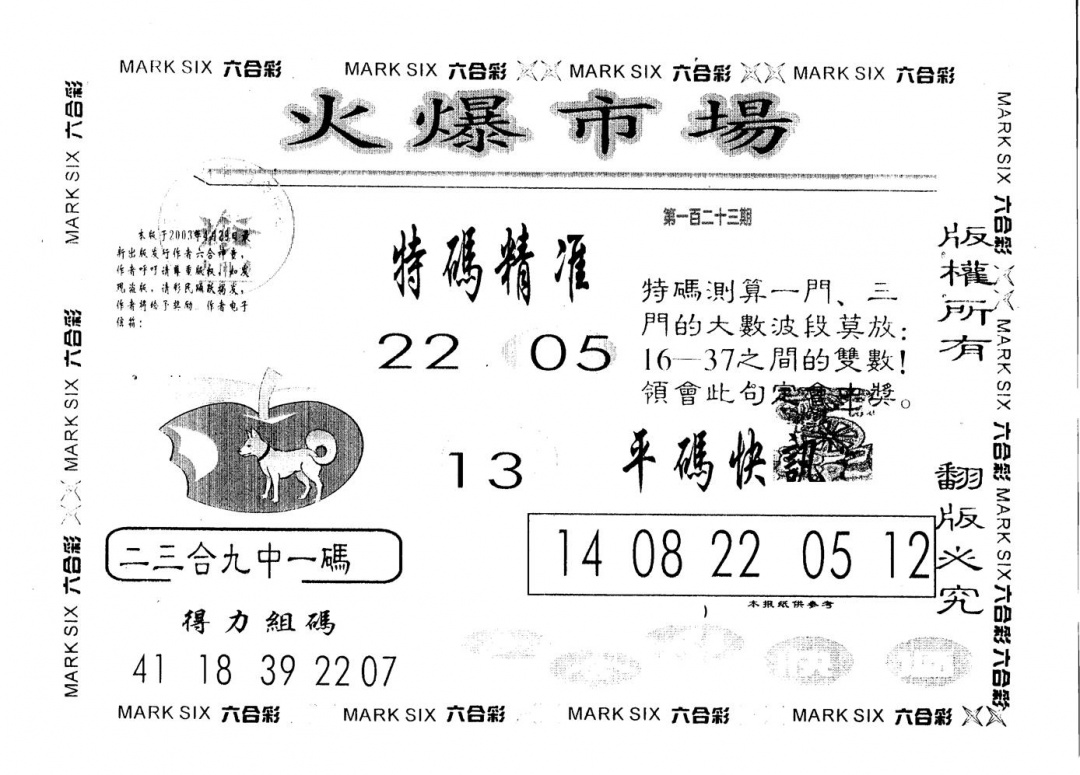 MARK SIX 六合彩 MARK SIX 六合彩 MARK SIX 六合彩 MARK SIX 六合彩
火爆市場
第一百二十三期
本版于2003年 月 日最
新出版发行作者六合神童，
作者呼吁请尊重版权，如发
现盗版，请彩民踊跃揭发，
作者将给予奖励 作者电子
信箱：
特碼精准
22 05
13
特碼測算一門、三
門的大數波段莫放：
16—37之間的雙數！
領會此句定會中獎。
平碼快訊
14 08 22 05 12
本报纸供参考
二三合九中一碼
得力組碼
41 18 39 22 07
版權所有
翻版必究
MARK SIX 六合彩 MARK SIX 六合彩 MARK SIX 六合彩
MARK SIX 六合彩 MARK SIX 六合彩 MARK SIX 六合彩 六合彩
MARK SIX 六合彩 MARK SIX 六合彩 MARK SIX 六合彩 MARK SIX 六合彩